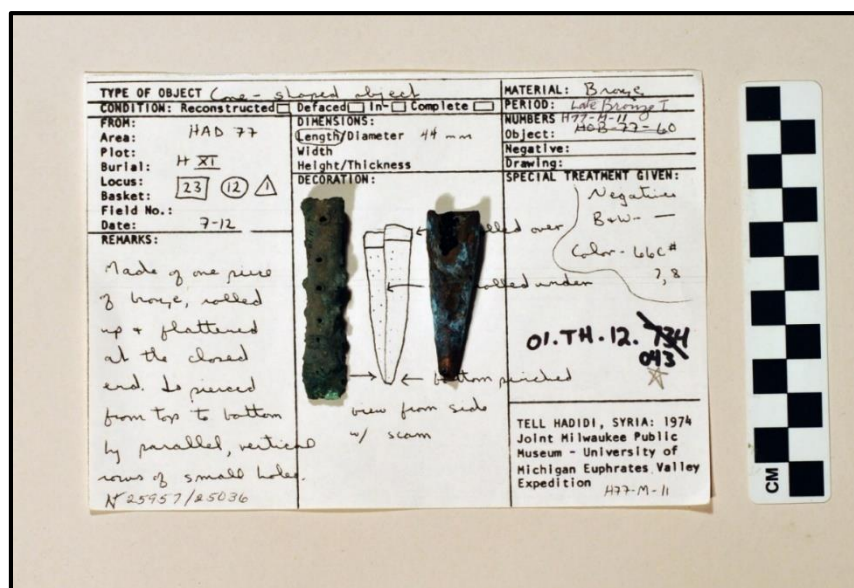 TYPE OF OBJECT Cone-shaped object
CONDITION: Reconstructed Defaced In- Complete
FROM:
Area: HAD 77
Plot:
Burial: H XI
Locus: 23 12 1
Basket:
Field No.:
Date: 7-12
REMARKS:
Made of one piece
of bronze, rolled
up + flattened
at the closed
end. Is pierced
from top to bottom
by parallel, vertical
rows of small holes.
N 25957/25036
DIMENSIONS:
Length/Diameter 44 mm
Width
Height/Thickness
DECORATION:
rolled over
rolled under
bottom pinched
view from side
w/ seam
MATERIAL: Bronze
PERIOD: Late Bronze I
NUMBERS H77-M-11
Object: HOB-77-60
Negative:
Drawing:
SPECIAL TREATMENT GIVEN:
Negatives
B+W- —
Color - 66C#
7,8
01.TH.12. 734
043
TELL HADIDI, SYRIA: 1974
Joint Milwaukee Public
Museum - University of
Michigan Euphrates Valley
Expedition H77-M-11
CM